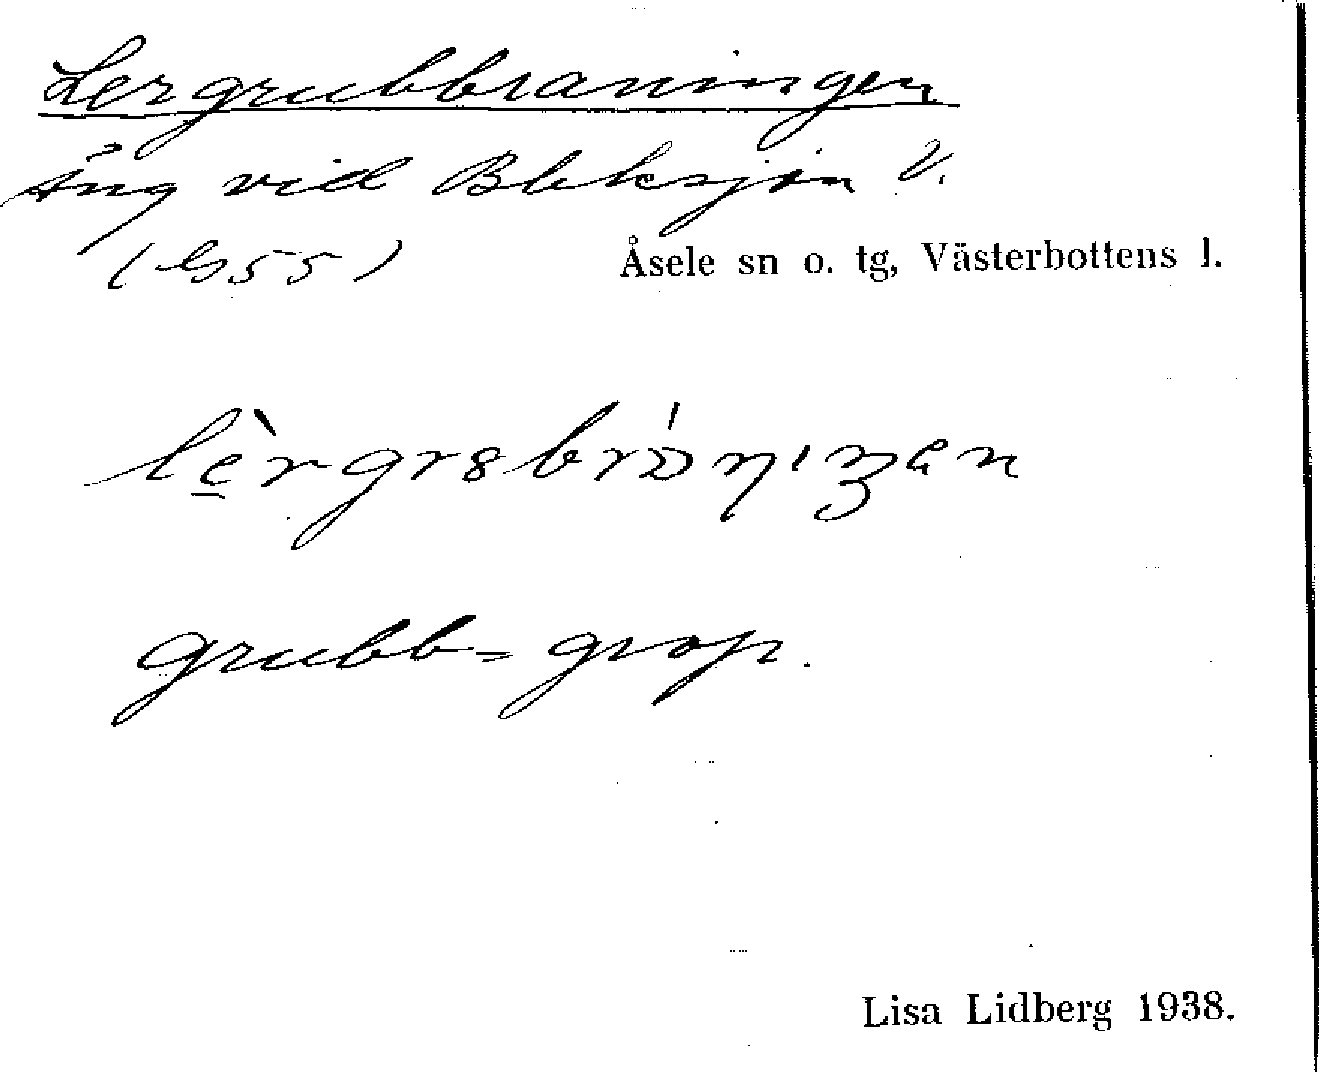 Lergrubbraningen
Äng vid Bleksjön V.
(G55)
Åsele sn o. tg, Västerbottens l.
grubb = grop.
Lisa Lidberg 1938.